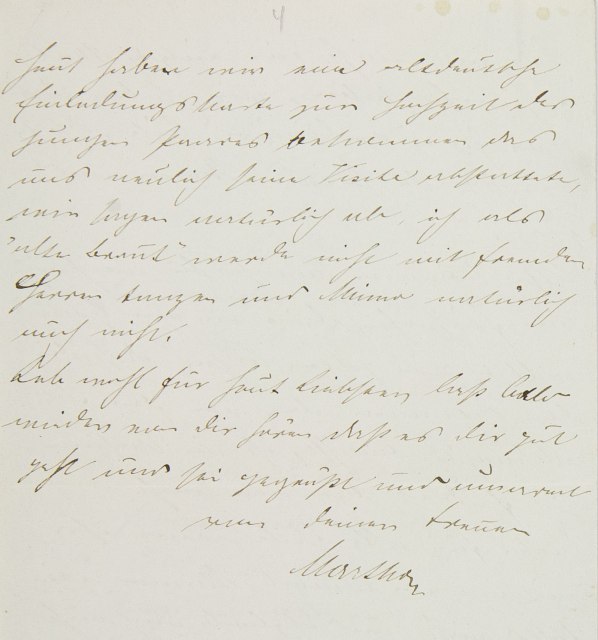 4
heut haben wir eine altdeutsche
Einladungskarte zur Hochzeit des
jungen Paares bekommen das
uns neulich seine Visite abstattete,
wir sagen natürlich ab, ich als
"alte Braut" werde nicht mit fremden
Herren tanzen und Minna natürlich
auch nicht.
Leb wohl für heut Liebster laß bald
wieder von dir hören daß es dir gut
geht und sei gegrüßt und umarmt
von deiner treuen
Martha